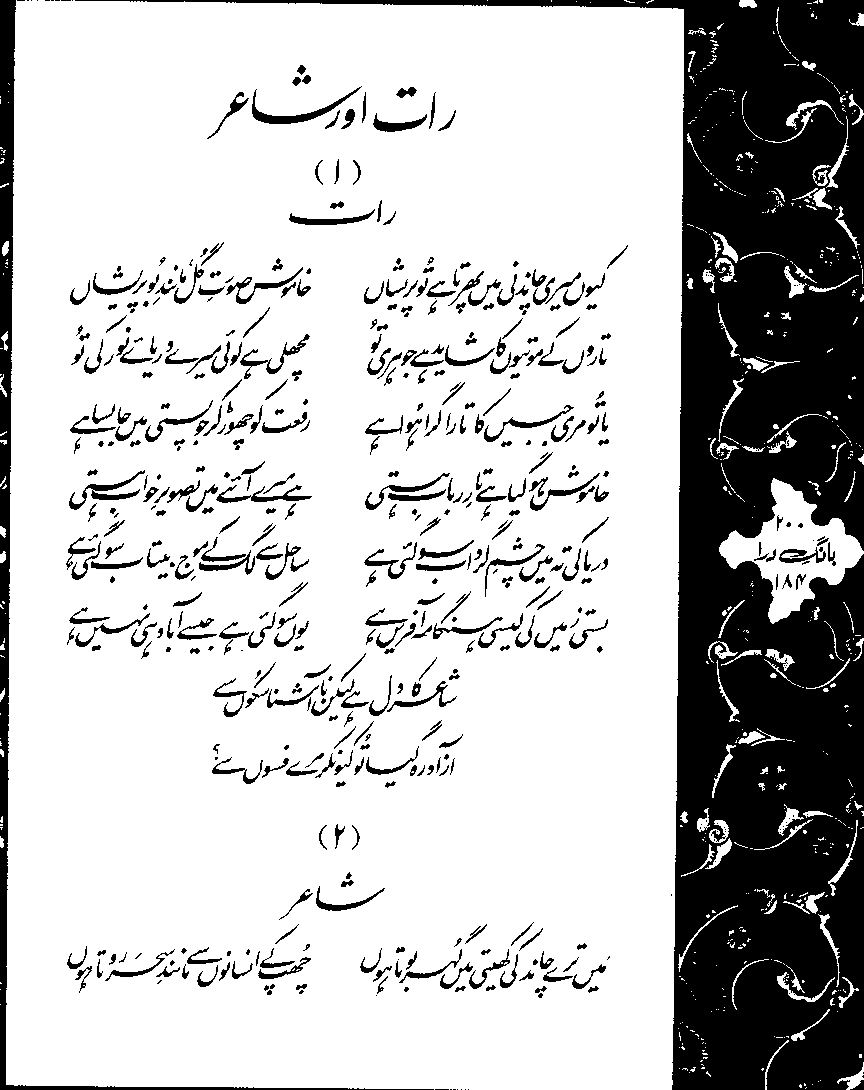 رات اور شاعر
(۱)
رات
کیوں میری چاندنی میں پھرتا ہے تُو پریشاں خاموش صورتِ گُل، مانندِ بُو پریشاں
تاروں کے موتیوں کا شاید ہے جوہری تُو مچھلی ہے کوئی میرے دریائے نور کی تُو
یا تُو مری جبیں کا تارا گرا ہُوا ہے رفعت کو چھوڑ کر جو پستی میں جا بسا ہے
خاموش ہو گیا ہے تارِ ربابِ ہستی ہے میرے آئنے میں تصویرِ خوابِ ہستی
دریا کی تہ میں چشمِ گرداب سو گئی ہے ساحل سے لگ کے موجِ بیتاب سو گئی ہے
بستی زمیں کی کیسی ہنگامہ آفریں ہے یوں سو گئی ہے جیسے آباد ہی نہیں ہے
شاعر کا دل ہے لیکن ناآشنا سکُوں سے
آزاد رہ گیا تُو کیونکر مرے فسوں سے؟
(۲)
شاعر
مَیں ترے چاند کی کھیتی میں گُہر بوتا ہوں چھُپ کے انسانوں سے مانندِ سحَر روتا ہوں
۲۰۰
بانگِ درا
۱۸۴